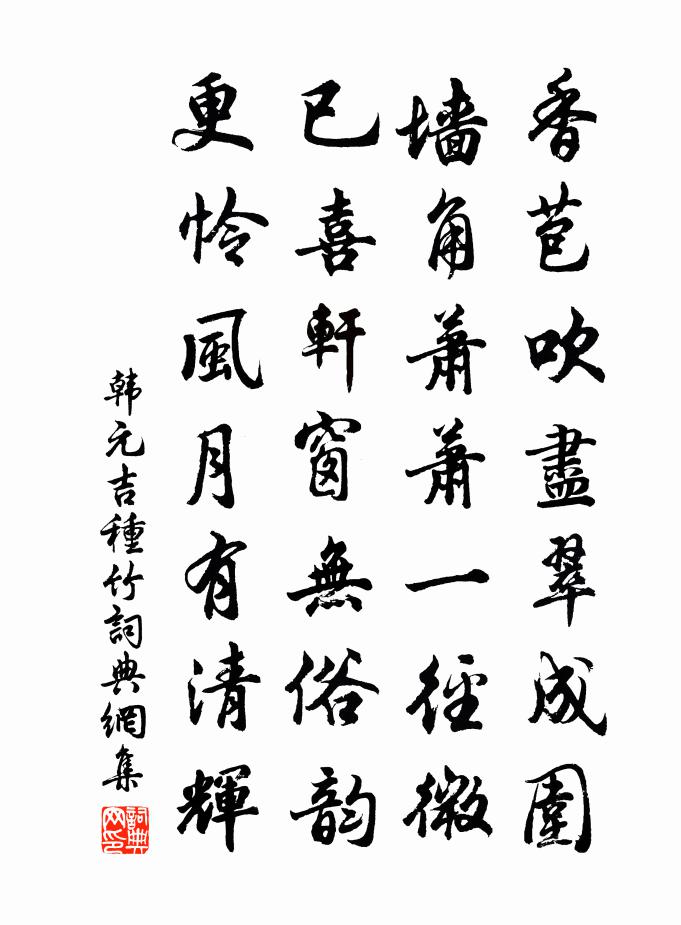 香苞吹盡翠成圍
墙角蕭蕭一徑微
已喜軒窗無俗韵
更怜風月有清輝
韩元吉種竹詞典網集
詞典网印